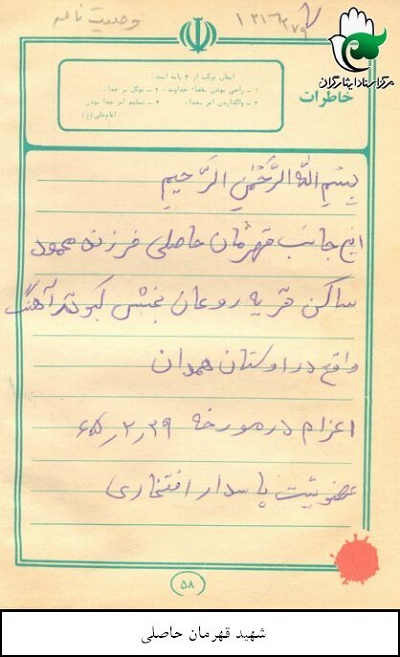 وصیت نامه
۱۲۱۶۲۷۹
مرکز اسناد ایثارگران
خاطرات
ایمان مرکب از ۴ پایه است:
۱ - راضی بودن بقضاء خداوند، ۲ - توکل بر خدا،
۳ - واگذاردن امر بخدا، ۴ - تسلیم امر خدا بودن
امام علی (ع)
بسم الله الرحمن الرحیم
اینجانب قهرمان حاصلی فرزند محمود
ساکن قریه روعان بخش کبودرآهنگ
واقع در اوستان همدان
اعزام در مورخه ۲۹ر۲ر۶۵
عضویت پاسدار افتخاری
۵۸
شهید قهرمان حاصلی